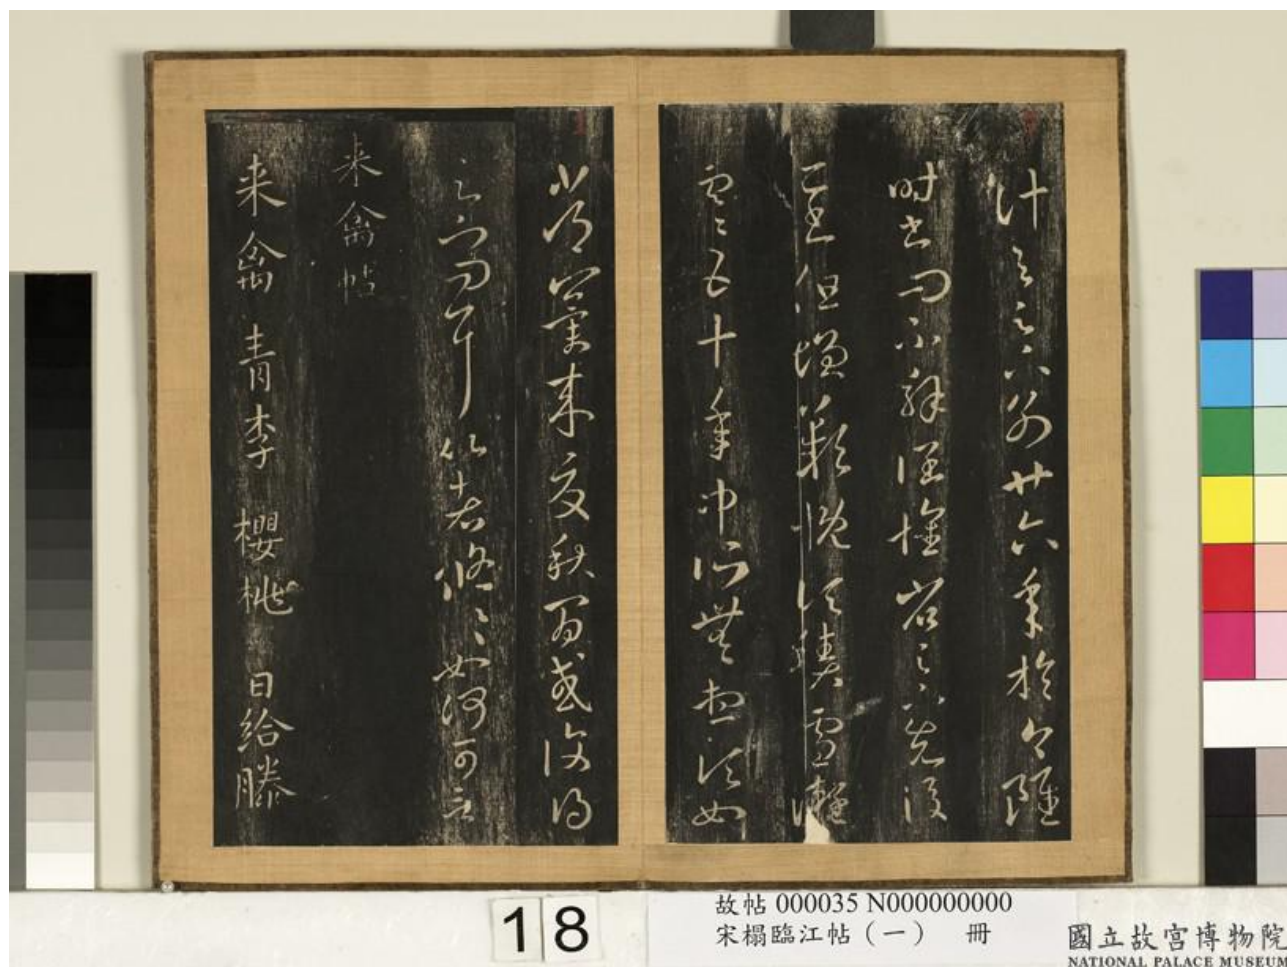 計与足下別廿六年於今雖
時書問不解闊懷省足下先後
二書但增歎慨頃積雪凝
寒五十年中所無想頃如
常冀來夏秋間或復得
足下問耳比者悠悠如何可言
来禽帖
来禽 青李 櫻桃 日給滕
18
故帖 000035 N000000000
宋搨臨江帖（一） 冊
國立故宮博物院
NATIONAL PALACE MUSEUM